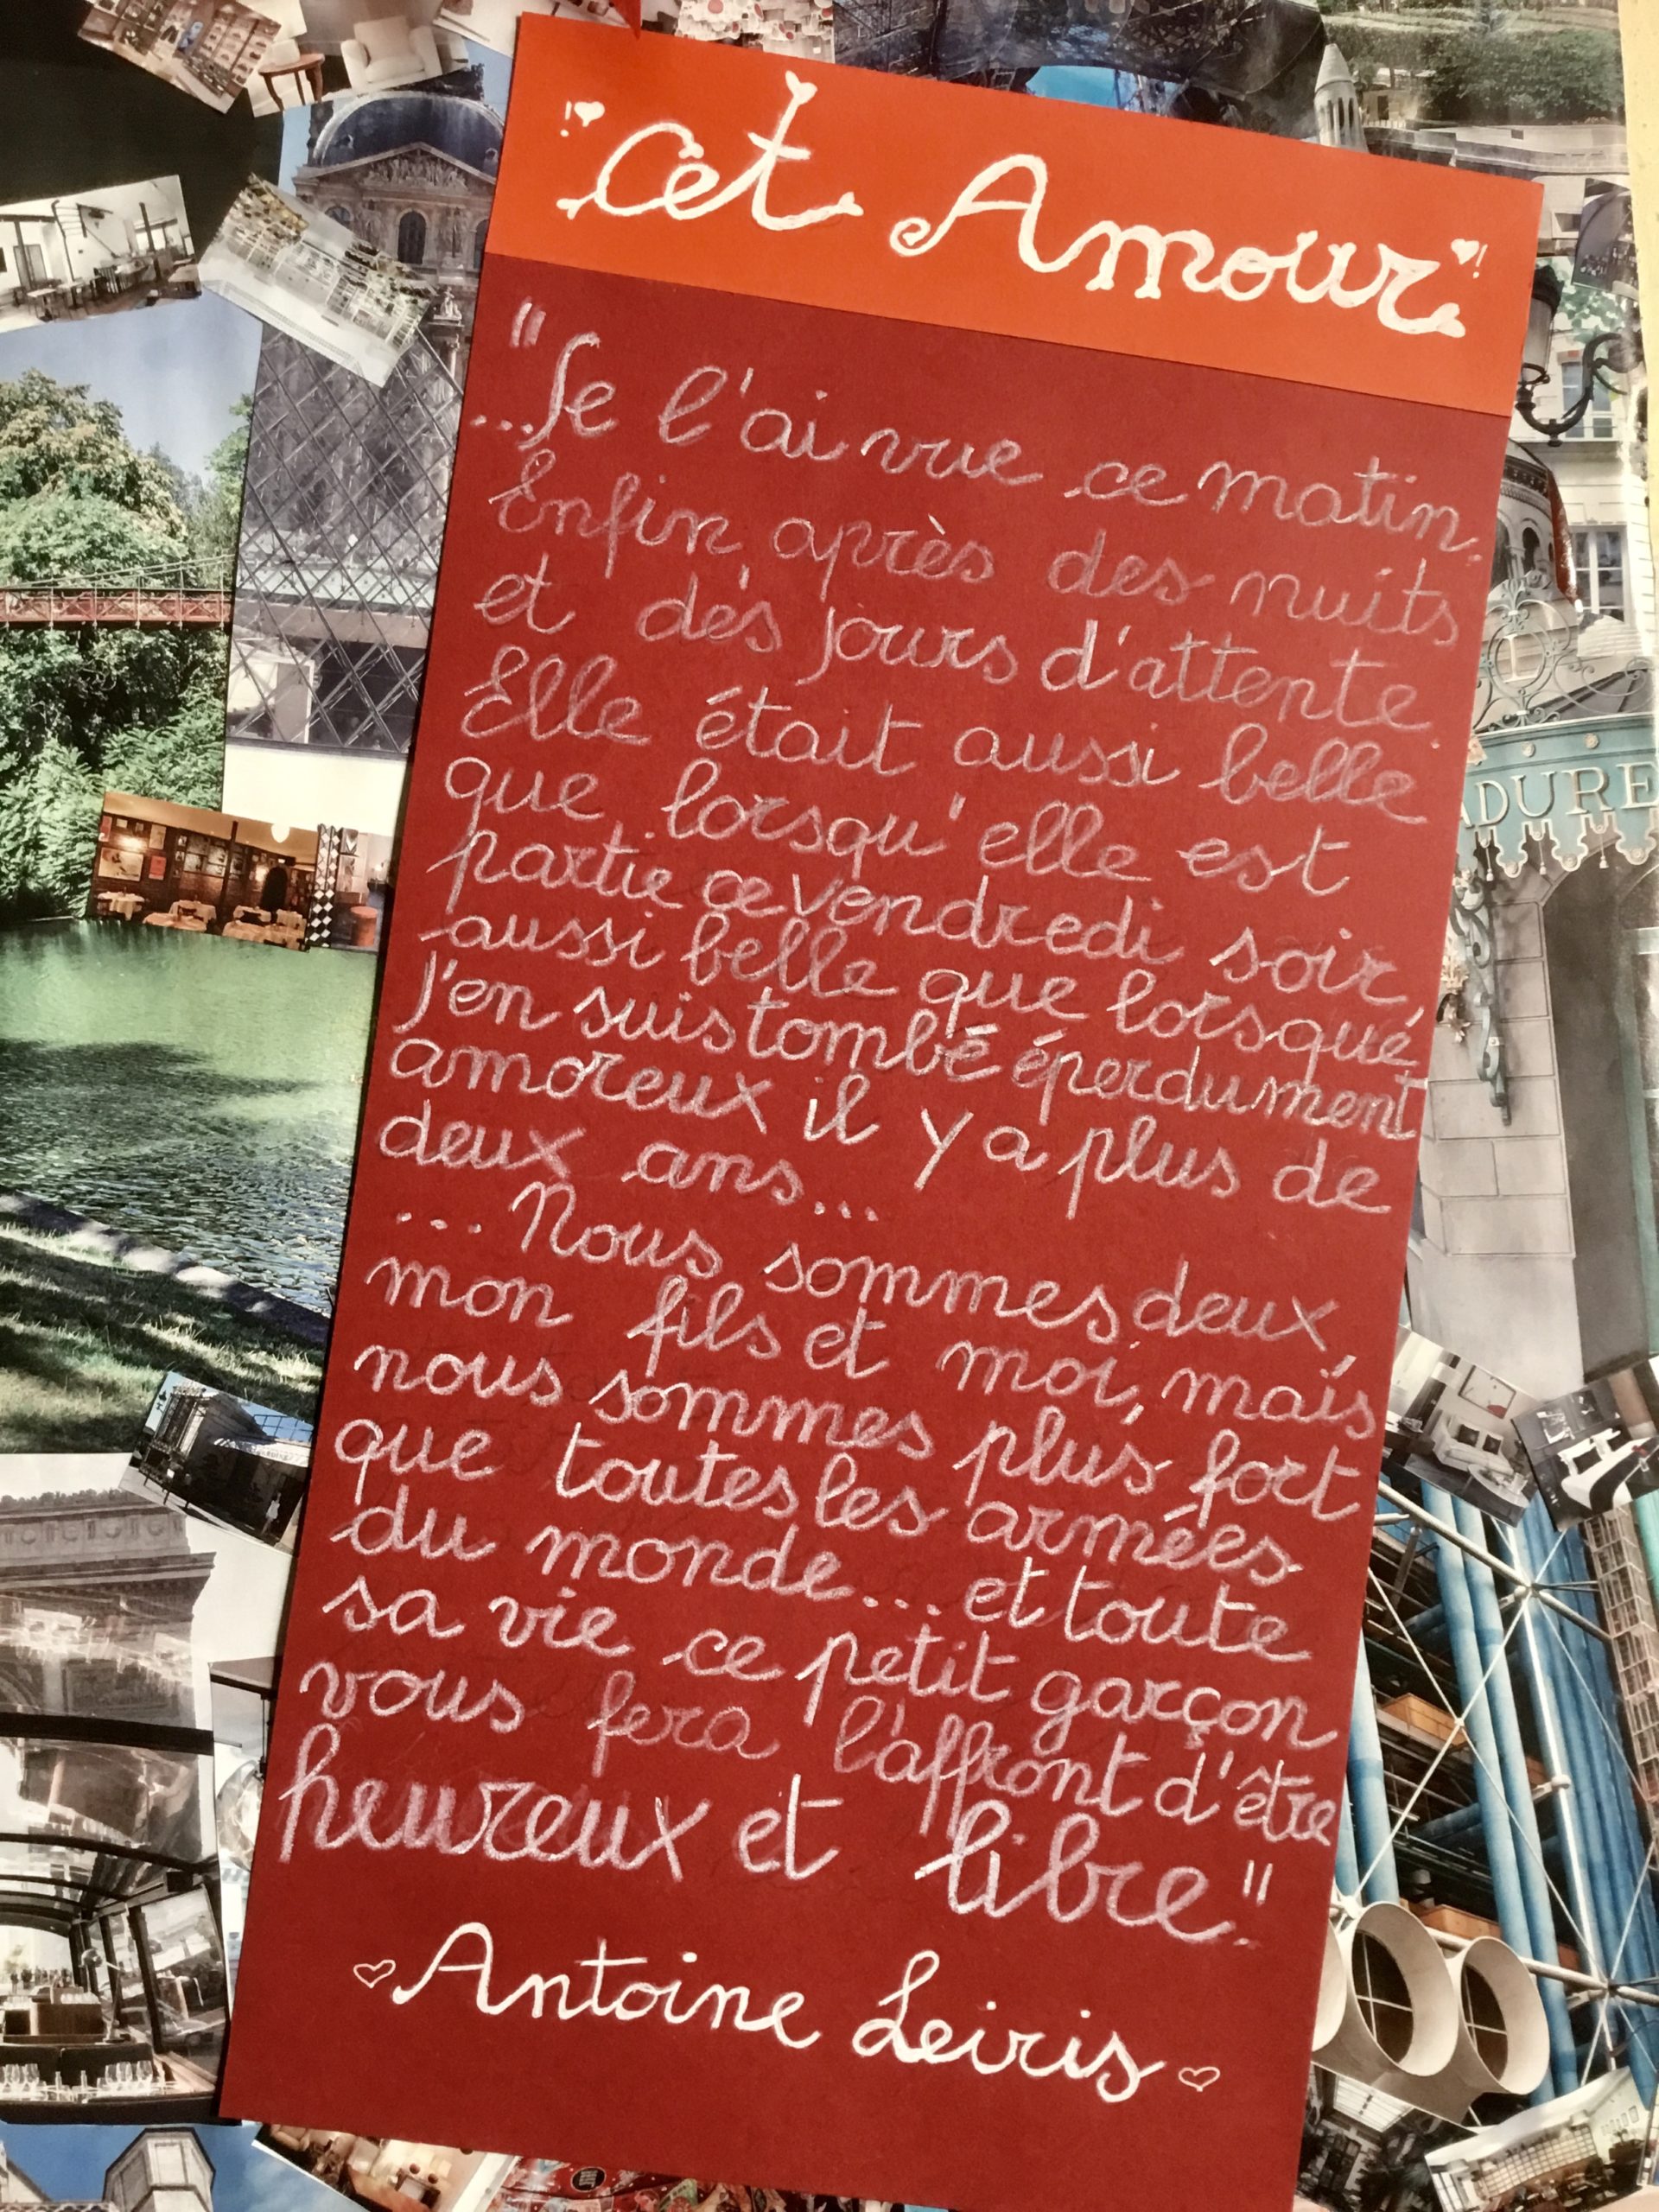 "Cet Amour"!
"
...Je l'ai vue ce matin.
Enfin après des nuits
et des jours d'attente.
Elle était aussi belle
que lorsqu'elle est
partie ce vendredi soir,
aussi belle que lorsque
j'en suis tombé éperdument
amoreux il y a plus de
deux ans...
... Nous sommes deux
mon fils et moi, mais
nous sommes plus fort
que toutes les armées
du monde... et toute
sa vie ce petit garçon
vous fera l'affront d'être
heureux et libre."
Antoine Leiris
ADURE